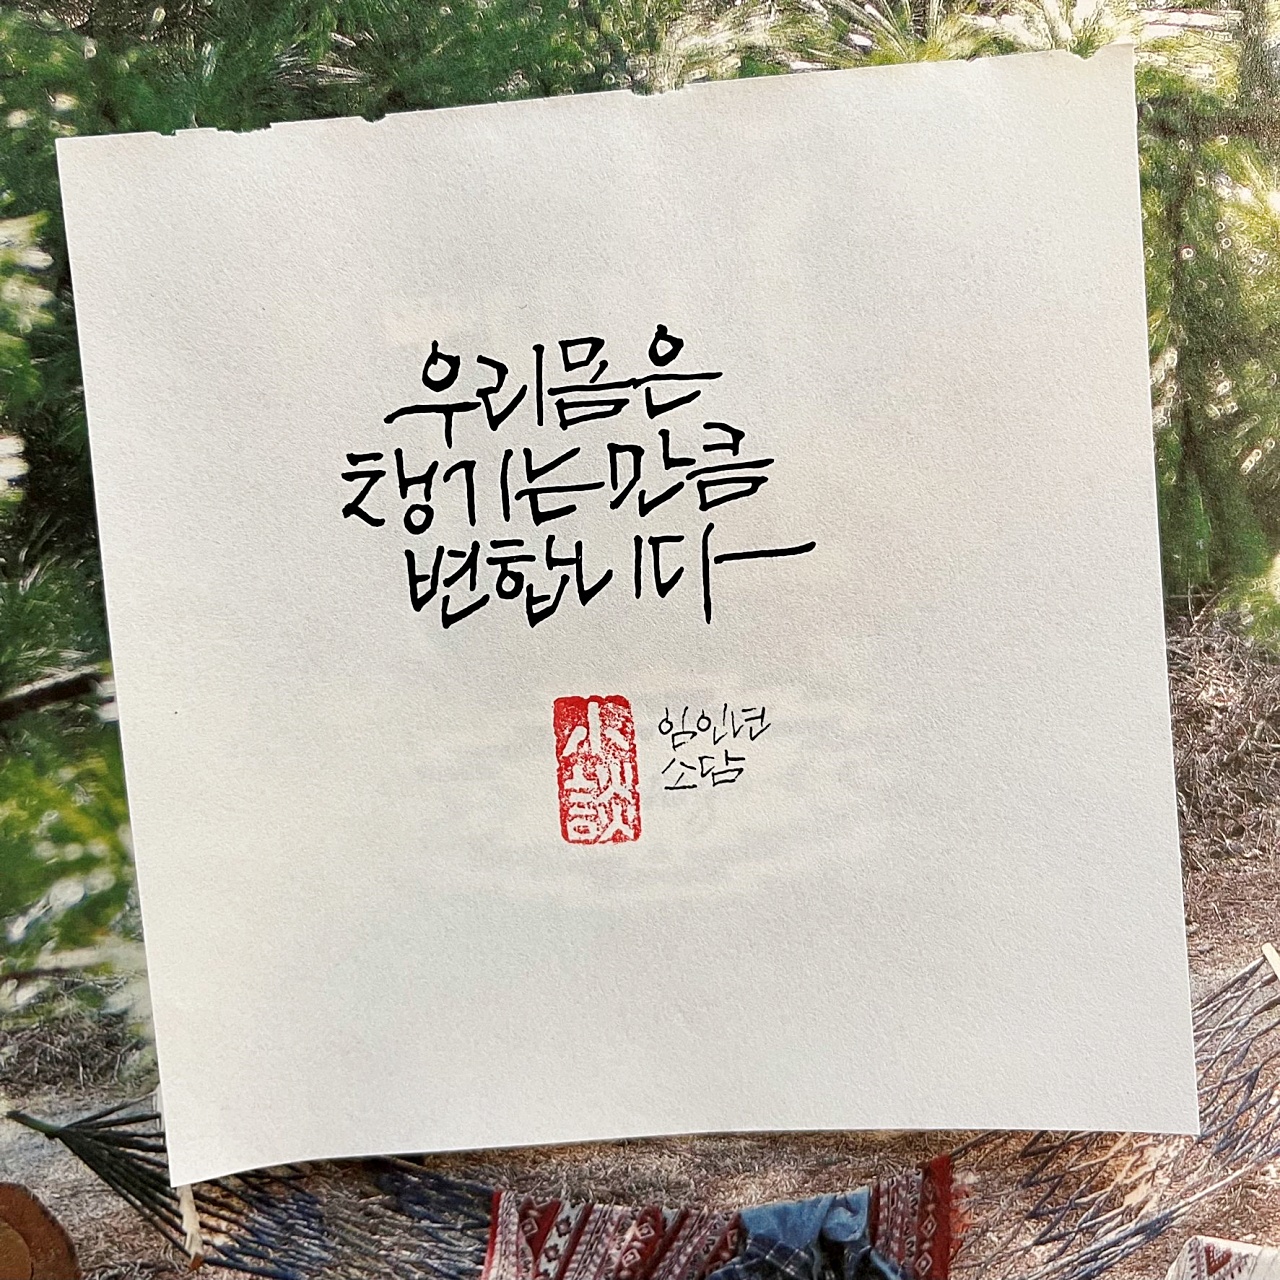 우리몸은
챙기는만큼
변합니다
小談
임인년
소담